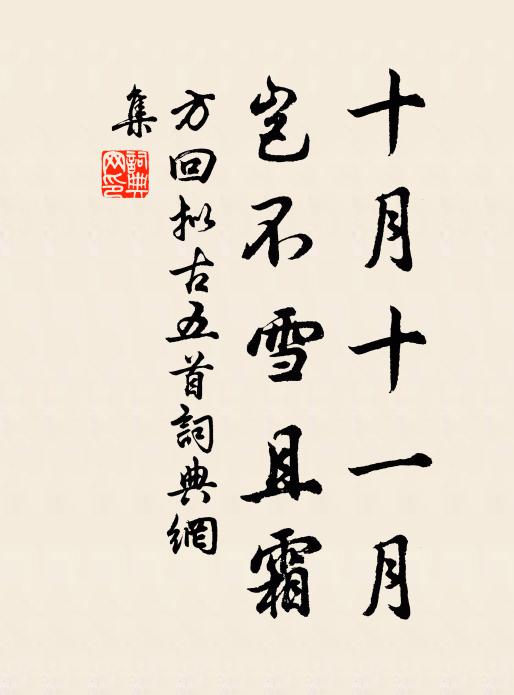 十月十一月
岂不雪且霜
方回拟古五首詞典網
集
詞典网印